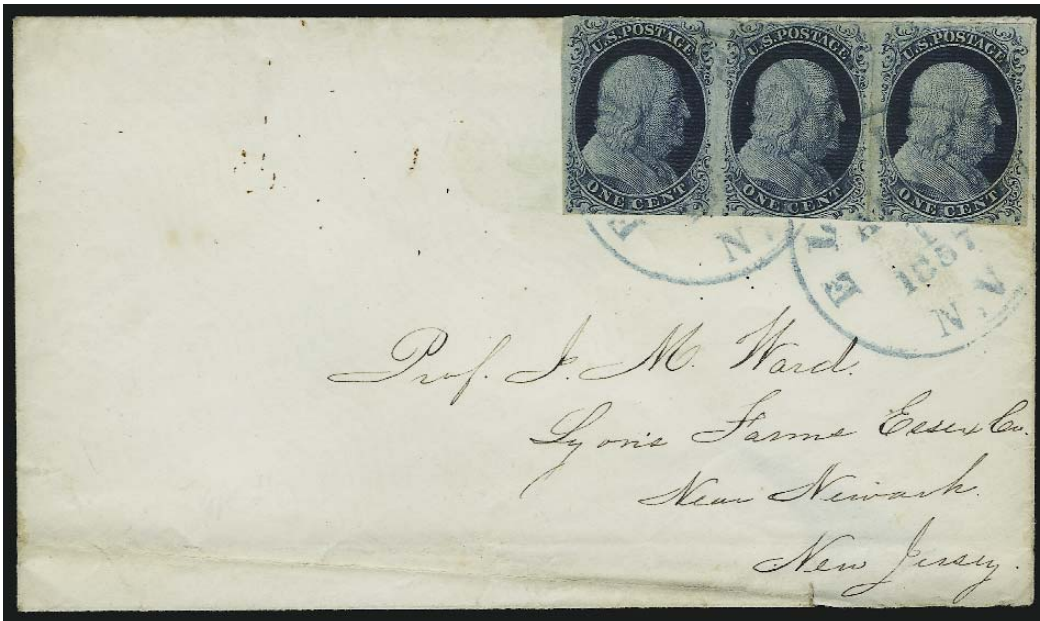 U.S. POSTAGE U.S. POSTAGE U.S. POSTAGE
ONE CENT ONE CENT ONE CENT
N.
1857
N.Y
Prof. J. M. Ward.
Lyons Farms Essex Co.
Near Newark.
New Jersey.